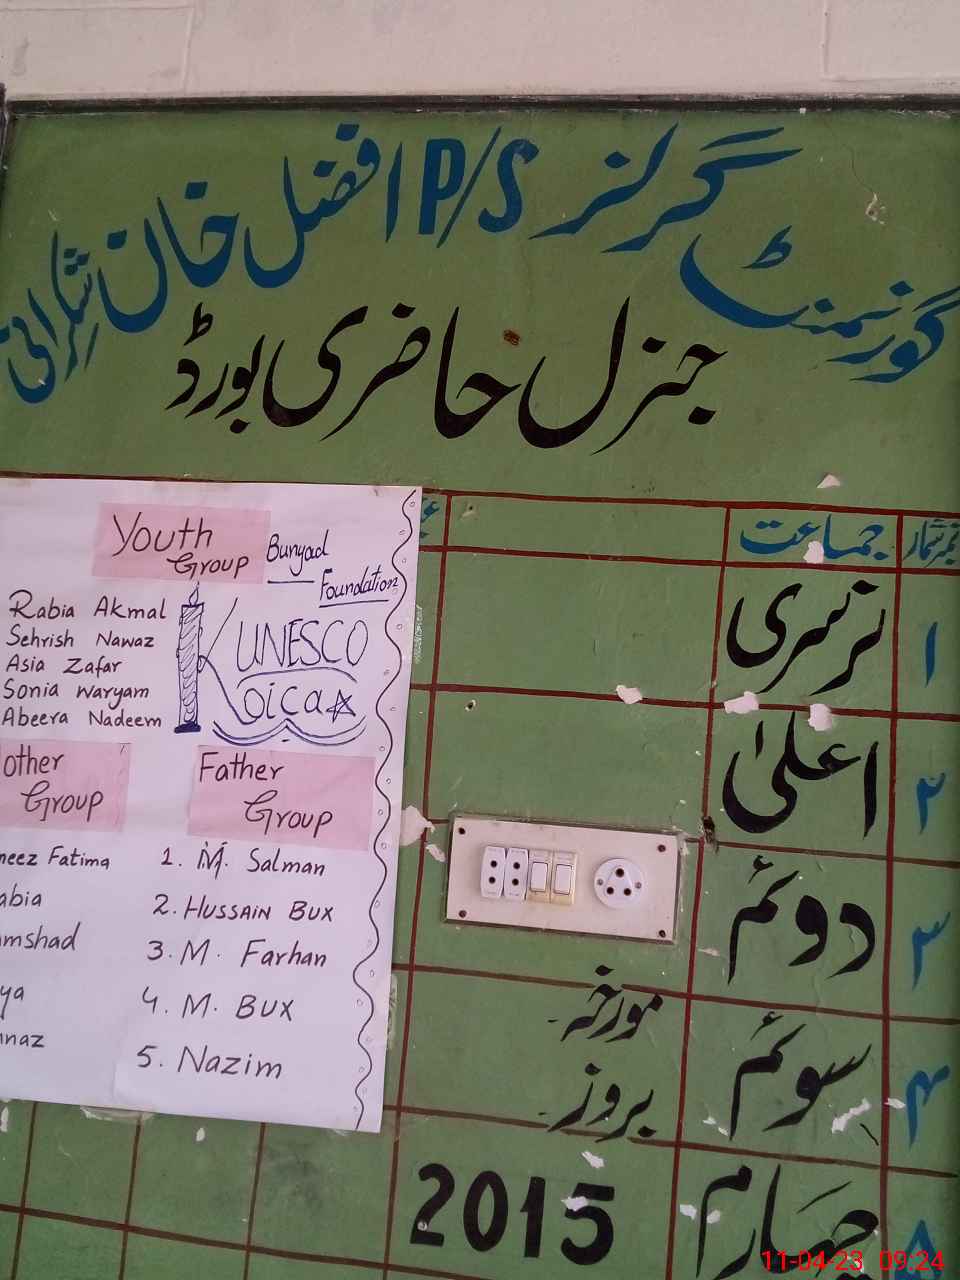 گورنمنٹ گرلز P/S افضل خان شکرانی
جنرل حاضری بورڈ
نمبر شمار جماعت
۱ نرسری
۲ اعلیٰ
۳ دوئم
۴ سوئم
مورخہ
بروز
چہارم
2015
Youth Group
Bunyad Foundation
Rabia Akmal
Sehrish Nawaz
Asia Zafar
Sonia Waryam
Abeera Nadeem
UNESCO
Koica
other Group
neez Fatima
abia
mshad
ya
naz
Father Group
1. M. Salman
2. Hussain Bux
3. M. Farhan
4. M. Bux
5. Nazim
11-04-23 09:24